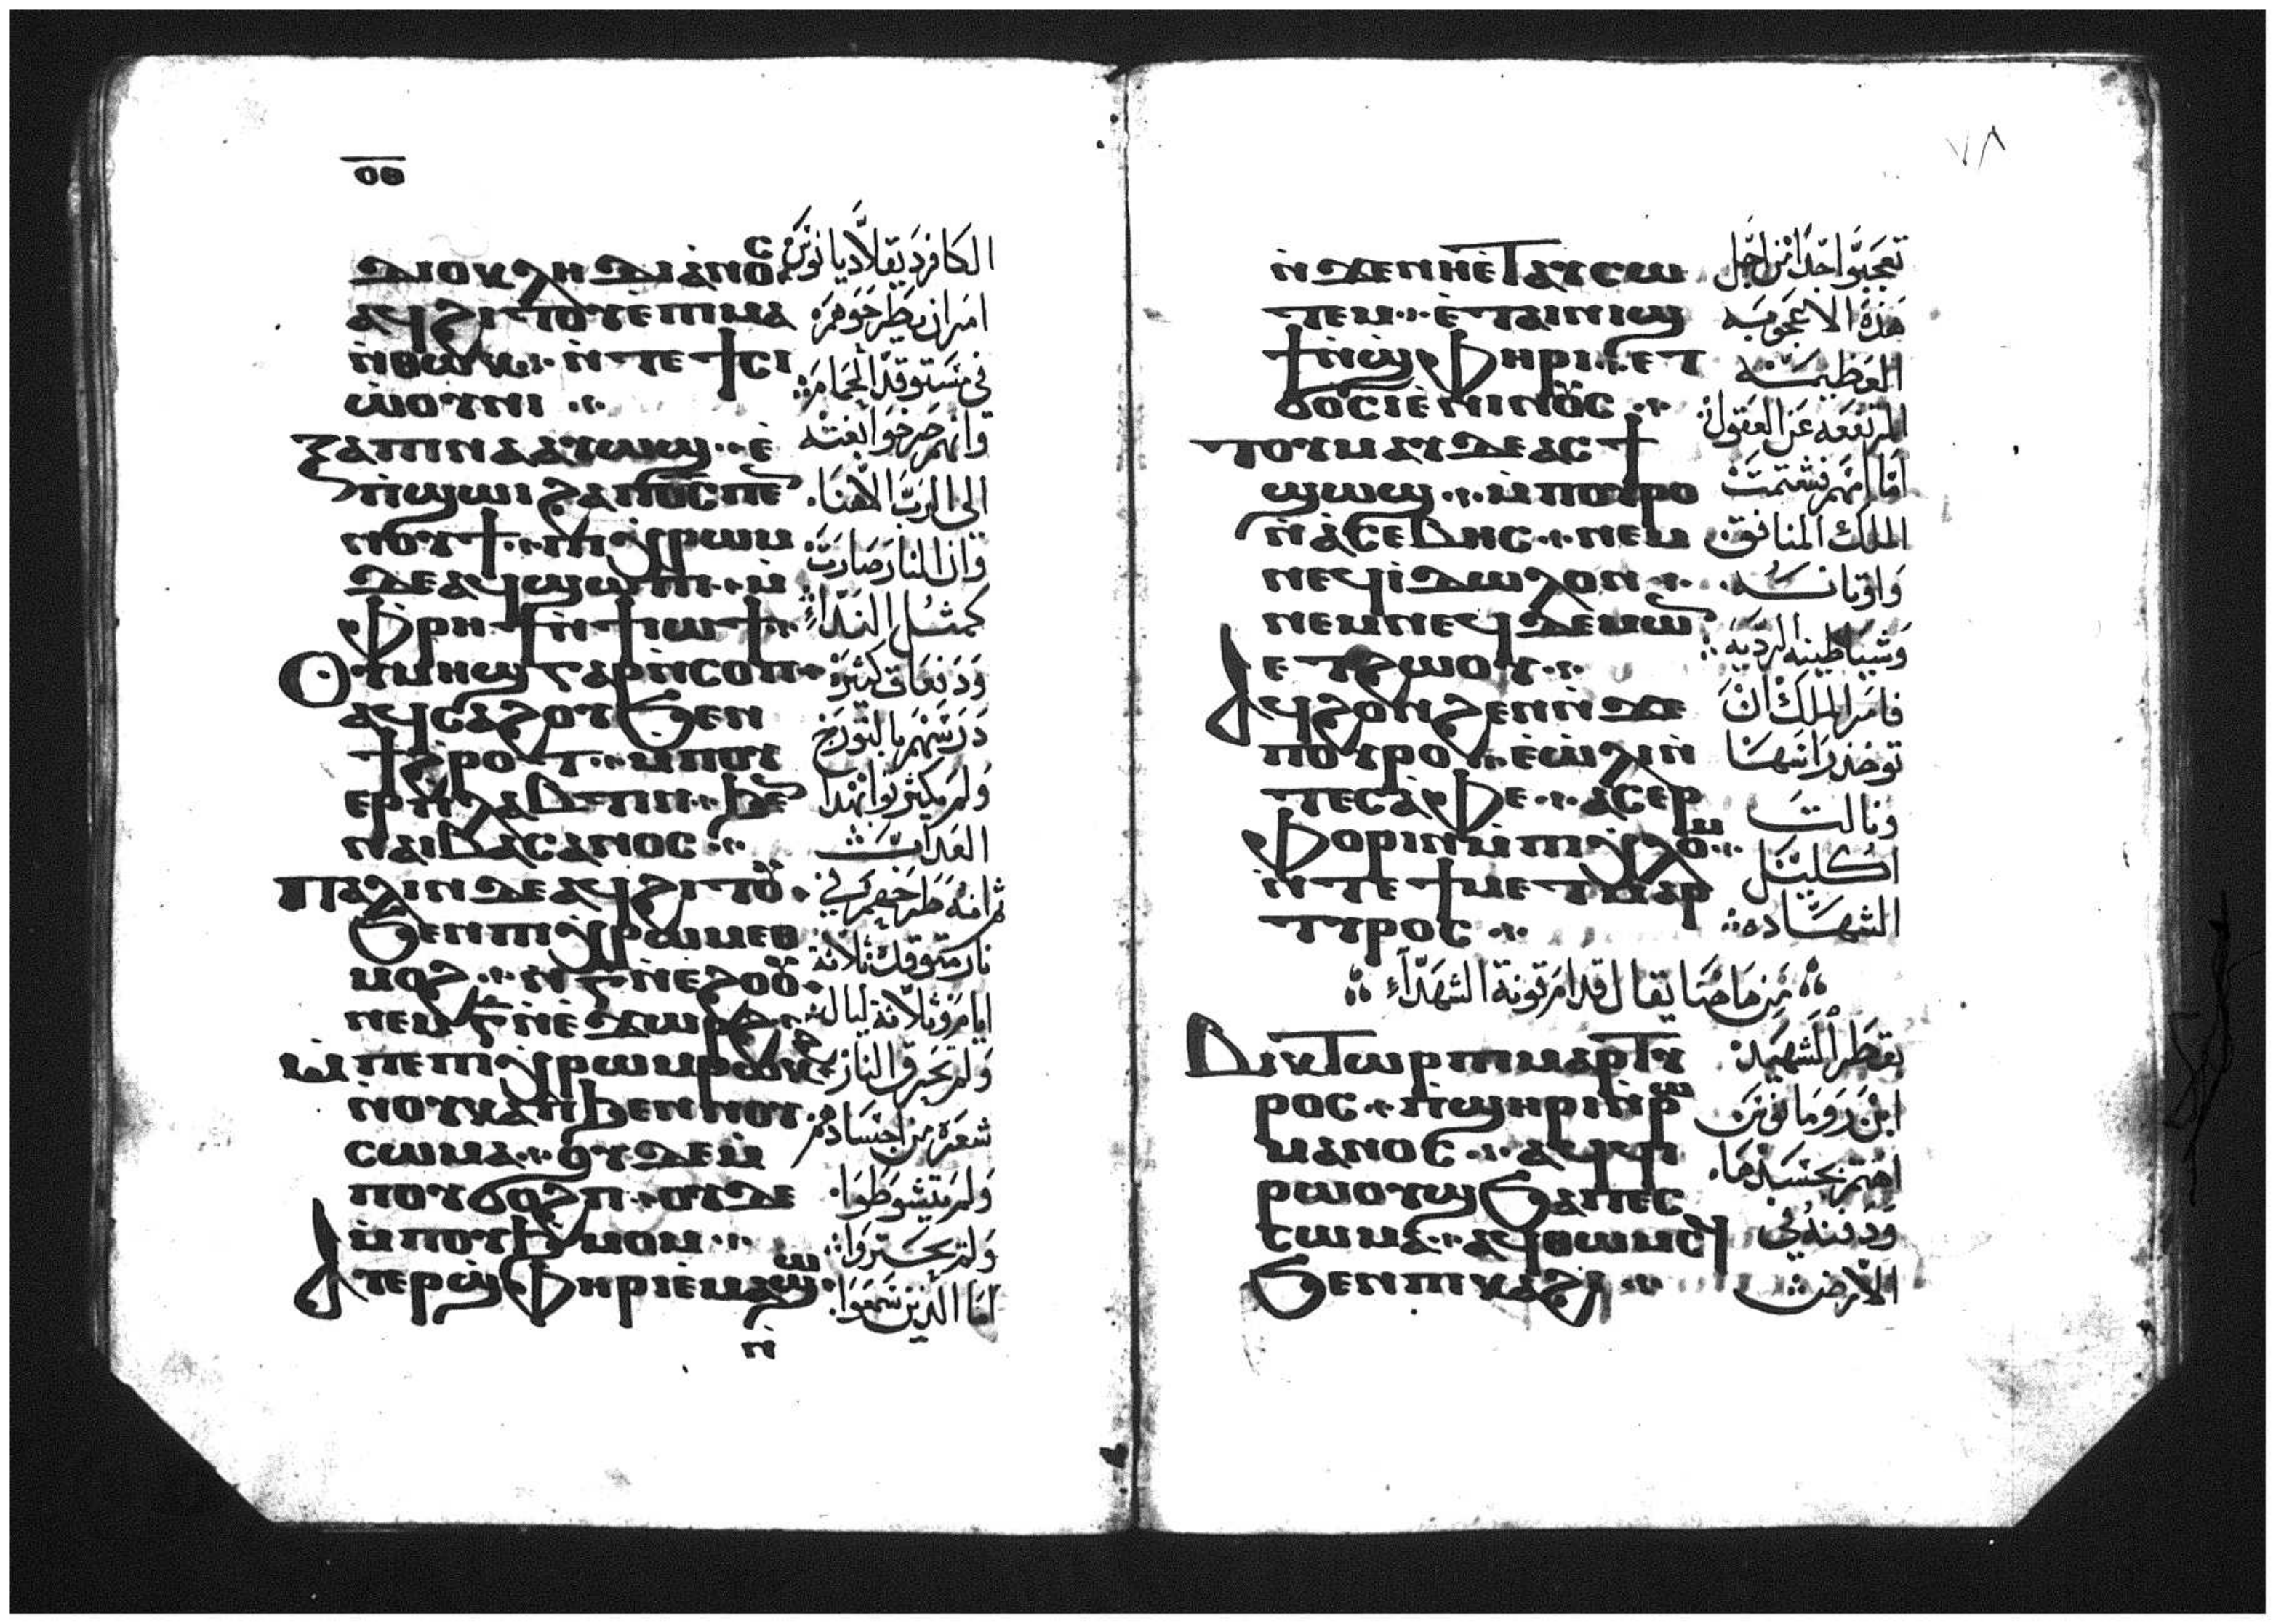 ⲟⲑ
ⲇⲓⲟⲕⲗⲏⲇⲓⲁⲛⲟⲥ
ⲁϥϩⲓⲧⲟⲩ ⲉ̀ⲡⲓⲙⲁ
ⲛ̀ⲑⲱⲕ ⲛ̀ⲧⲉϯⲥⲓ
ⲱⲟⲩⲛⲓ
ⲝⲁⲡⲓⲛⲁ ⲁⲩⲱϣ ⲉ̀
ⲡ̀ϣⲱⲓ ϩⲁ ⲡ⳪ ⲡⲉⲛ
ⲛⲟⲩϯ ⲡⲓⲭⲣⲱⲙ
ⲇⲉ ⲁϥϣⲱⲡⲓ ⲙ̀
ⲫⲣⲏϯ ⲛ̀ϯⲓⲱϯ
Ⲟⲩⲙⲏϣ ⲅⲁⲣ ⲛ̀ⲥⲟⲡ
ⲁϥⲥⲁϩⲟⲩ ϧⲉⲛ
ϯϩⲣⲟⲧ ⲙ̀ⲡⲟⲩ
ⲉⲣϩⲗⲁⲃⲧⲓⲛ ϧⲉⲛ
ⲛⲁⲓⲃⲁⲥⲁⲛⲟⲥ
Ⲡⲁⲗⲓⲛ ⲇⲉ ⲁϥϩⲓⲧⲟⲩ
ϧⲉⲛ ⲡⲓⲭⲣⲱⲙ ⲉⲑ
ⲙⲟϩ ⲛ̀ⲅ̅ ⲛ̀ⲉϩⲟⲟⲩ
ⲛⲉⲙ ⲅ̅ ⲛ̀ⲉ̀ϫⲱⲣϩ
ⲙ̀ⲡⲉ ⲡⲓⲭⲣⲱⲙ ⲣⲱⲕϩ
ⲛ̀ⲟⲩⲕⲁⲡ ϧⲉⲛ ⲛⲟⲩ
ⲥⲱⲙⲁ ⲟⲩⲇⲉ ⲙ̀
ⲡⲟⲩϭⲟϩⲡ ⲟⲩⲇⲉ
ⲙ̀ⲡⲟⲩϧⲙⲟⲙ
Ⲁⲩⲉⲣϣ̀ⲫⲏⲣⲓ ⲉ̀ⲙⲁϣⲱ
ⲛ̀
الكافر ديقلاديانوس
امر ان يطرحوهم
في مستوقد الحمام
وانهم صرخوا بغتة
الى الرب الاهنا
وان النار صارت
كمثل الندا
ودفعات كثيرة
درسهم بالنورج
ولم يكترثوا بهذا
العذاب
ثم انه طرحهم في
نار متوقدة ثلاثة
ايام وثلاثة ليال
ولم تحرق النار
شعرة من اجسادهم
ولم يتشوطوا
ولم يحتروا
اما الذين سمعوا
٧٨
ⲛ̀ϫⲉ ⲛⲏⲉ̀ⲧⲁⲩⲥⲱ
ⲧⲉⲙ ⲉ̀ⲧⲁⲓⲛⲓϣ
ϯ ⲛ̀ϣ̀ⲫⲏⲣⲓ ⲉⲧ
ϭⲟⲥⲓ ⲉ̀ⲛⲓⲛⲟⲩⲥ
ⲧⲟⲩⲙⲁⲩ ⲇⲉ ⲁⲥϯ
ϣⲱϣ ⲙ̀ⲡⲟⲩⲣⲟ
ⲛ̀ⲁⲥⲉⲃⲏⲥ ⲛⲉⲙ
ⲛⲉϥⲓ̀ⲇⲱⲗⲟⲛ
ⲛⲉⲙ ⲛⲉϥⲇⲉⲙⲱⲛ
ⲉⲧϩⲱⲟⲩ
Ⲁϥϩⲟⲛϩⲉⲛ ⲛ̀ϫⲉ
ⲡⲟⲩⲣⲟ ⲉ̀ⲱ̀ⲗⲓ ⲛ̀
ⲧⲉⲥⲁ̀ⲫⲉ ⲁⲥⲉⲣ
ⲫⲟⲣⲓⲛ ⲙ̀ⲡⲓⲭⲗⲟⲙ
ⲛ̀ⲧⲉ ϯⲙⲉⲧⲙⲁⲣ
ⲧⲩⲣⲟⲥ
تعجبوا جدا من اجل
هذه الاعجوبه
العظيمه
المرتفعه عن العقول
اما امهم فشتمت
الملك المنافق
واوثانه
وشياطينه الرديه
فامر الملك ان
توخذ راسها
ونالت
اكليل
الشهاده
من ما ضا يقال قدام قونة الشهدآء
Ⲃⲓⲕⲧⲱⲣ ⲡⲓⲙⲁⲣⲧⲩ
ⲣⲟⲥ ⲡ̀ϣⲏⲣⲓ ⲛ̀ⲣⲱ
ⲙⲁⲛⲟⲥ ⲁϥϥⲓ
ⲣⲱⲟⲩϣ ϧⲁ ⲡⲉⲥ
ⲥⲱⲙⲁ ⲁϥⲑⲱⲙⲥϥ
ϧⲉⲛ ⲡⲓⲕⲁϩⲓ
بقطر الشهيد
ابن رومانوس
اهتم بجسدها
ودفنه في
الارض